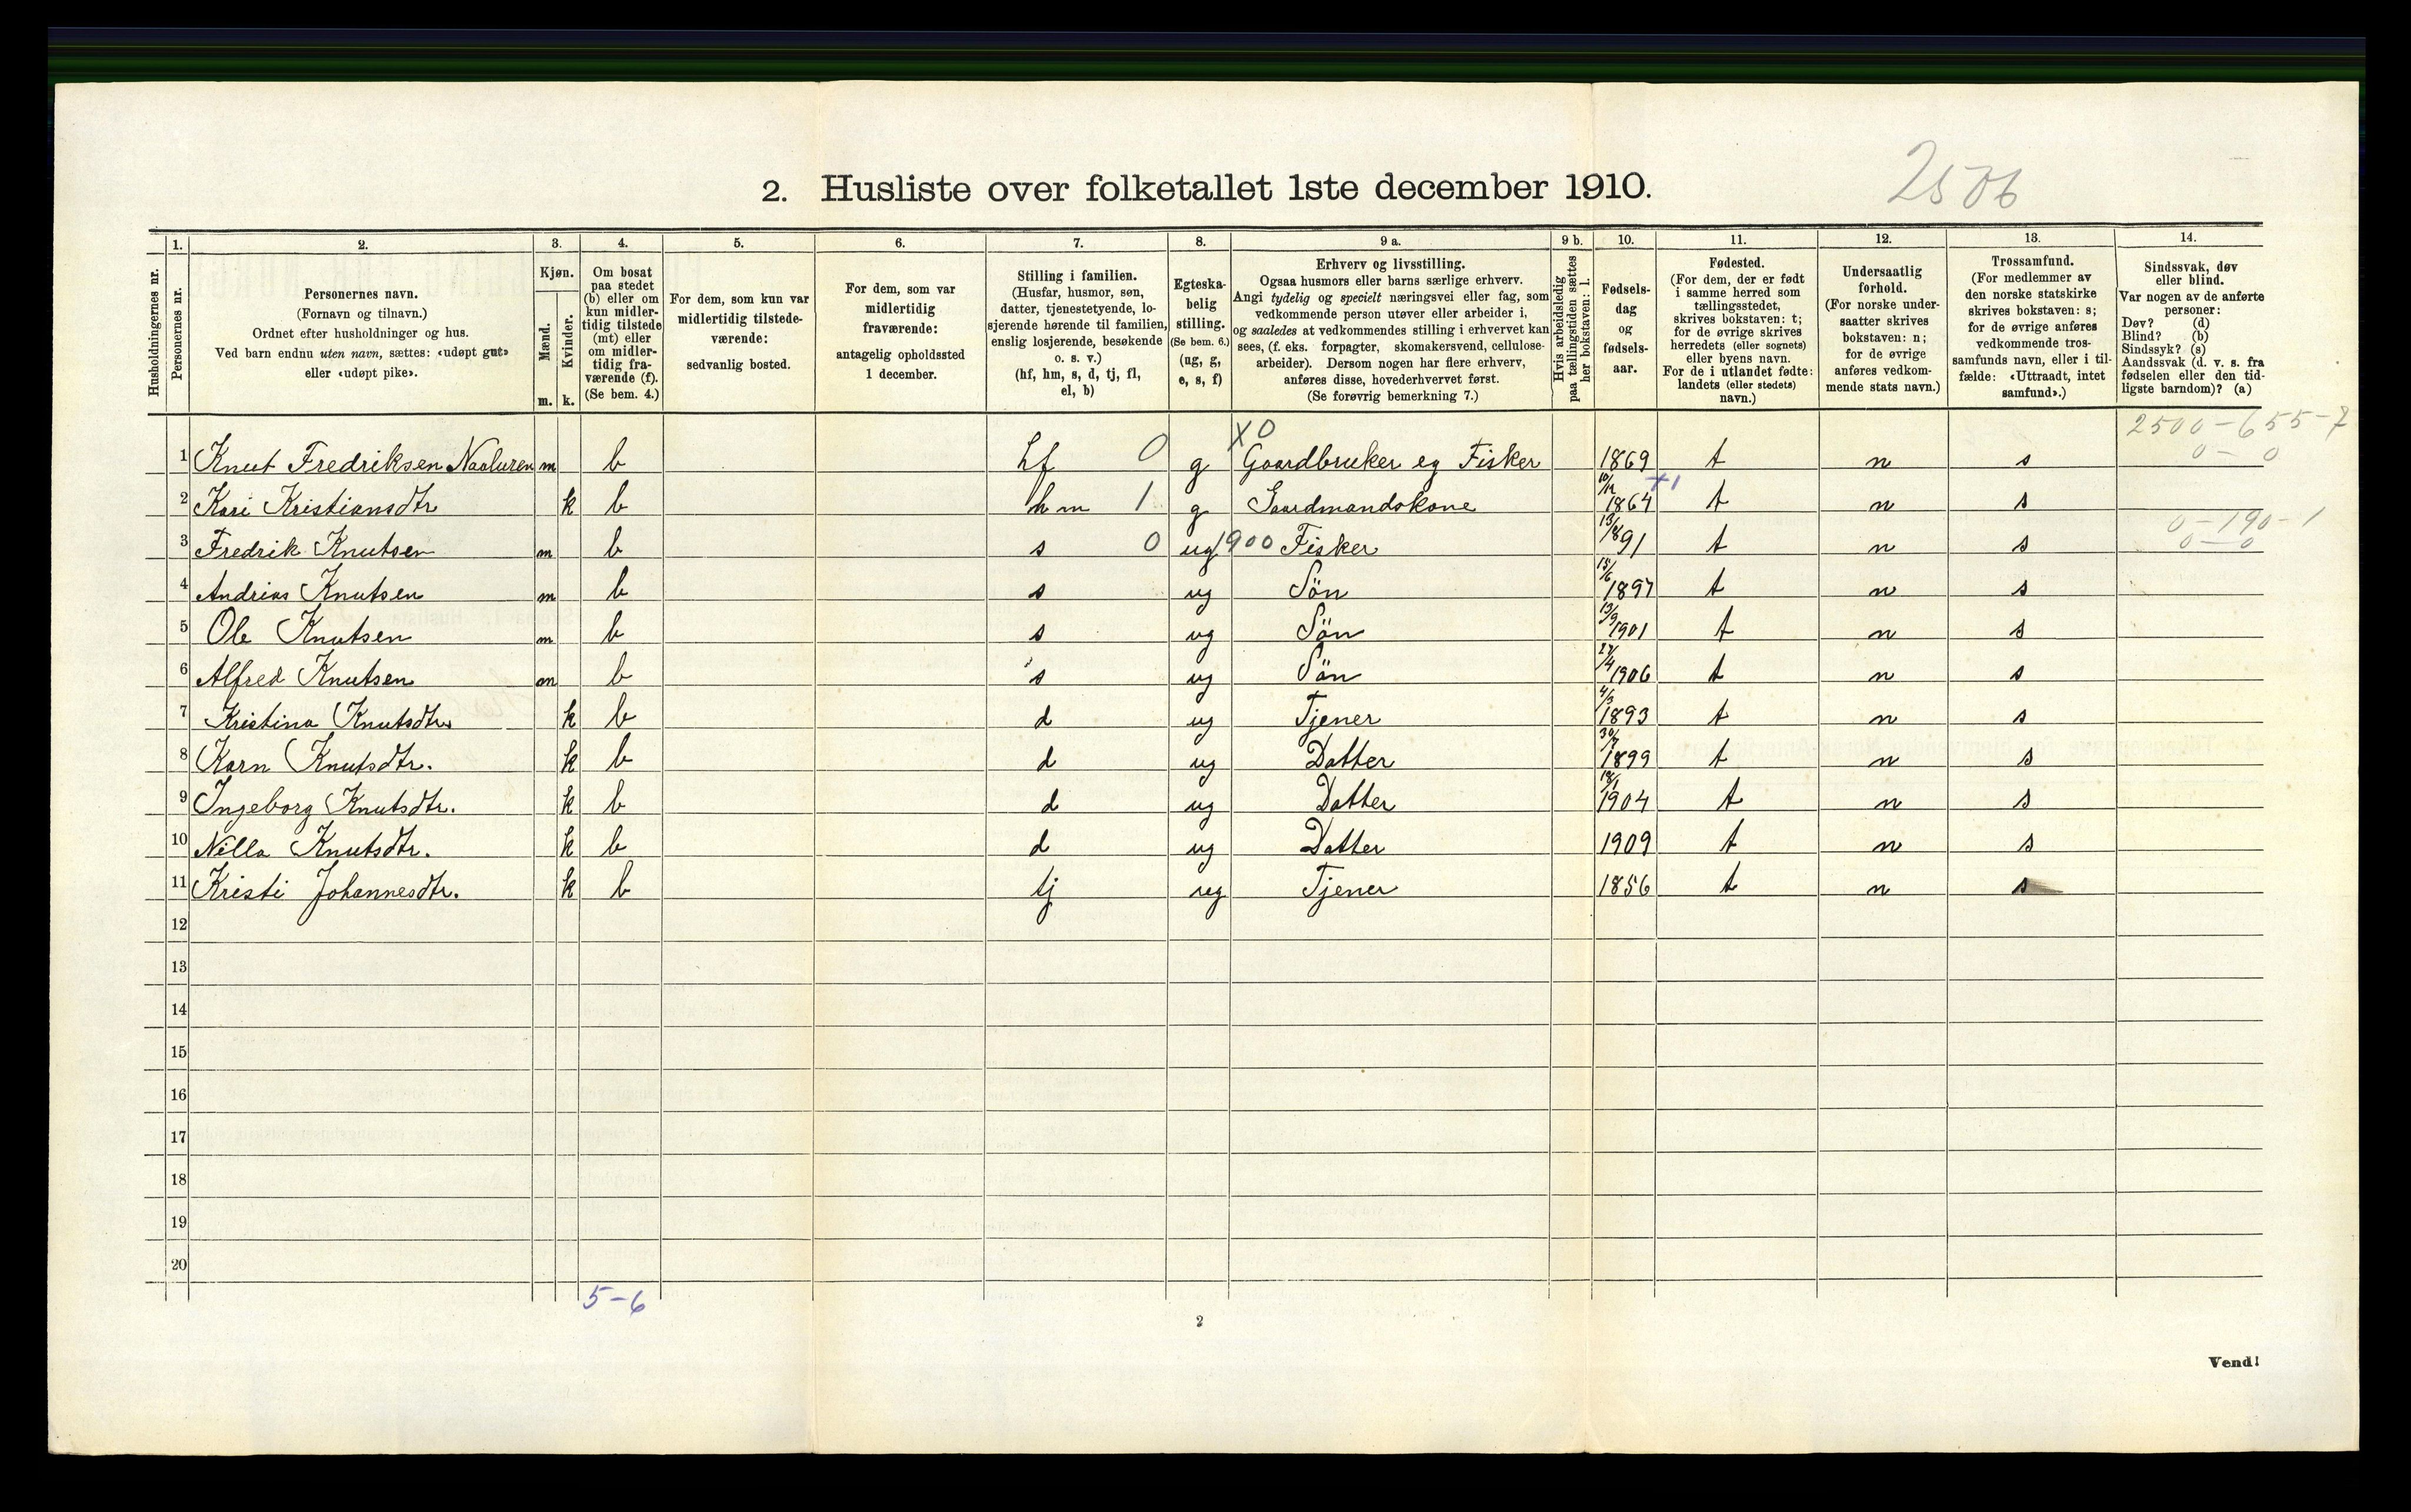 2. Husliste over folketallet 1ste december 1910.
2506
Husholdningernes nr.
1. Personernes nr.
2. Personernes navn.
(Fornavn og tilnavn.)
Ordnet efter husholdninger og hus.
Ved barn endnu uten navn, sættes: «udøpt gut»
eller «udøpt pike».
3. Kjøn.
Mænd. m.
Kvinder. k.
4. Om bosat
paa stedet
(b) eller om
kun midler-
tidig tilstede
(mt) eller
om midler-
tidig fra-
værende (f).
(Se bem. 4.)
5. For dem, som kun var
midlertidig tilstede-
værende:
sedvanlig bosted.
6. For dem, som var
midlertidig
fraværende:
antagelig opholdssted
1 december.
7. Stilling i familien.
(Husfar, husmor, søn,
datter, tjenestetyende, lo-
sjerende hørende til familien,
enslig losjerende, besøkende
o. s. v.)
(hf, hm, s, d, tj, fl,
el, b)
8. Egteska-
belig
stilling.
(Se bem. 6.)
(ug, g,
e, s, f)
9 a. Erhverv og livsstilling.
Ogsaa husmors eller barns særlige erhverv.
Angi tydelig og specielt næringsvei eller fag, som
vedkommende person utøver eller arbeider i,
og saaledes at vedkommendes stilling i erhvervet kan
sees, (f. eks. forpagter, skomakersvend, cellulose-
arbeider). Dersom nogen har flere erhverv,
anføres disse, hovederhvervet først.
(Se forøvrig bemerkning 7.)
9 b. Hvis arbeidsledig
paa tællingstiden sættes
her bokstaven: l.
10. Fødsels-
dag
og
fødsels-
aar.
11. Fødested.
(For dem, der er født
i samme herred som
tællingsstedet,
skrives bokstaven: t;
for de øvrige skrives
herredets (eller sognets)
eller byens navn.
For de i utlandet fødte:
landets (eller stedets)
navn.)
12. Undersaatlig
forhold.
(For norske under-
saatter skrives
bokstaven: n;
for de øvrige
anføres vedkom-
mende stats navn.)
13. Trossamfund.
(For medlemmer av
den norske statskirke
skrives bokstaven: s;
for de øvrige anføres
vedkommende tros-
samfunds navn, eller i til-
fælde: «Uttraadt, intet
samfund».)
14. Sindssvak, døv
eller blind.
Var nogen av de anførte
personer:
Døv? (d)
Blind? (b)
Sindssyk? (s)
Aandssvak (d. v. s. fra
fødselen eller den tid-
ligste barndom)? (a)
X 0 2500-655-7
1 Knut Fredriksen Naaluren m b hf 0 g Gaardbruker eg Fisker 1869 t n s 0 - 0
2 Kari Kristiansdtr k b hm 1 g Gaardmandskone 10/12 1864 +1 t n s
0-190-1
3 Fredrik Knutsen m b s 0 ug 1900 Fisker 13/8 91 t n s 0 - 0
4 Andrias Knutsen m b s ug Sön 15/6 1897 t n s
5 Ole Knutsen m b s ug Sön 13/9 1901 t n s
6 Alfred Knutsen m b s ug Sön 27/4 1906 t n s
7 Kristina Knutsdtr k b d ug Tjener 4/3 1893 t n s
8 Karn Knutsdtr. k b d ug Datter 30/7 1899 t n s
9 Ingeborg Knutsdtr. k b d ug Datter 18/1 1904 t n s
10 Nilla Knutsdtr. k b d ug Datter 1909 t n s
11 Kristi Johannesdtr. k b tj ug Tjener 1856 t n s
12
13
14
15
16
17
18
19
20
5-6
2
Vend!